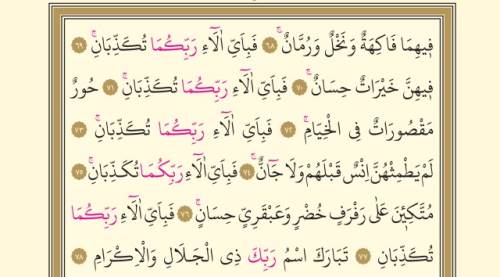 فِيهِمَا فَاكِهَةٌ وَنَخْلٌ وَرُمَّانٌۚ ﴿٦٨﴾ فَبِاَيِّ اٰلَٓاءِ رَبِّكُمَا تُكَذِّبَانِۚ ﴿٦٩﴾
فِيهِنَّ خَيْرَاتٌ حِسَانٌۚ ﴿٧٠﴾ فَبِاَيِّ اٰلَٓاءِ رَبِّكُمَا تُكَذِّبَانِۚ ﴿٧١﴾ حُورٌ
مَقْصُورَاتٌ فِي الْخِيَامِۚ ﴿٧٢﴾ فَبِاَيِّ اٰلَٓاءِ رَبِّكُمَا تُكَذِّبَانِۚ ﴿٧٣﴾
لَمْ يَطْمِثْهُنَّ اِنْسٌ قَبْلَهُمْ وَلَا جَٓانٌّۚ ﴿٧٤﴾ فَبِاَيِّ اٰلَٓاءِ رَبِّكُمَا تُكَذِّبَانِۚ ﴿٧٥﴾
مُتَّكِـِٔينَ عَلٰى رَفْرَفٍ خُضْرٍ وَعَبْقَرِيٍّ حِسَانٍۚ ﴿٧٦﴾ فَبِاَيِّ اٰلَٓاءِ رَبِّكُمَا
تُكَذِّبَانِ ﴿٧٧﴾ تَبَارَكَ اسْمُ رَبِّكَ ذِي الْجَلَالِ وَالْاِكْرَامِ ﴿٧٨﴾